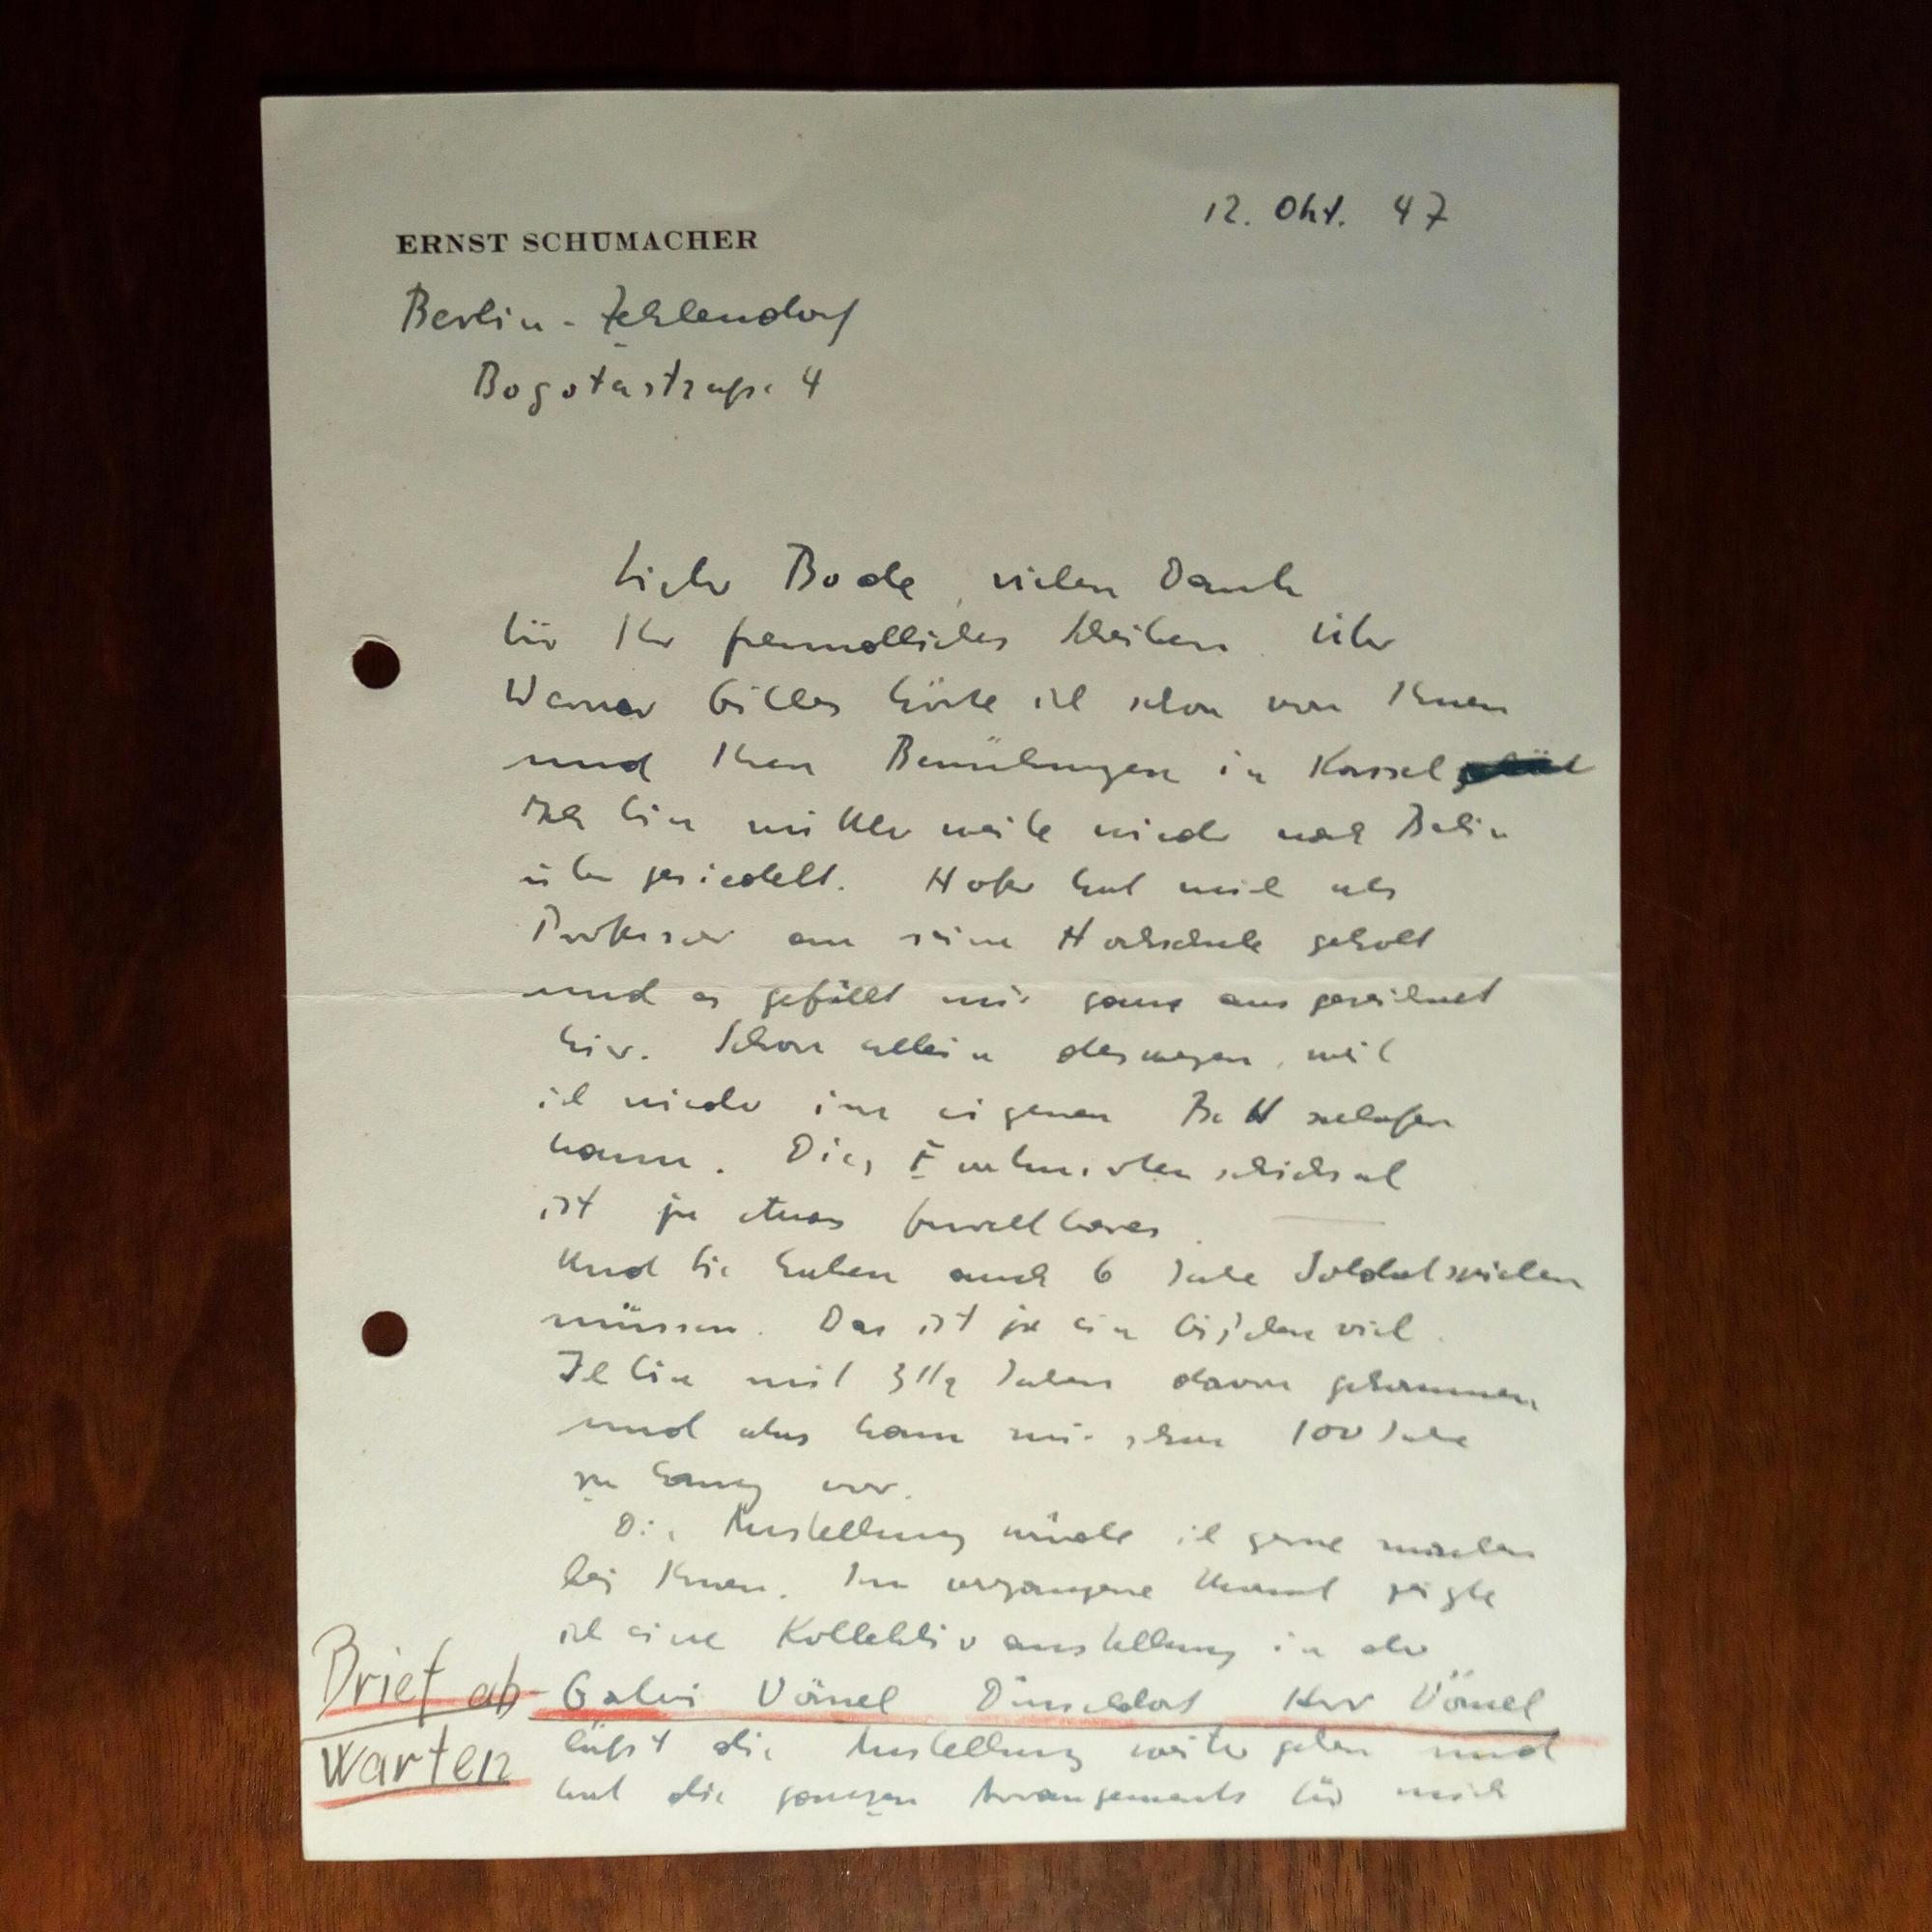 12. Okt. 47
ERNST SCHUMACHER
Berlin-Zehlendorf
Bogotastraße 4
Lieber Bode, vielen Dank
für Ihr freundliches Schreiben. Über
Werner Gilles hörte ich schon von Ihnen
und Ihren Bemühungen in Kassel
Ich bin mittlerweile wieder nach Berlin
übergesiedelt. Hofer hat mich als
Professor an seine Hochschule geholt
und es gefällt mir ganz ausgezeichnet
hier. Schon allein deswegen, weil
ich wieder im eigenen Bett schlafen
kann. Dies Evakuiertenschicksal
ist ja etwas furchtbares.
Und Sie haben auch 6 Jahre Soldat spielen
müssen. Das ist ja ein bißchen viel.
Ich bin mit 3 1/2 Jahren davon gekommen,
und das kam mir schon 100 Jahre
zu lang vor.
Die Ausstellung würde ich gerne machen
bei Ihnen. Im vergangene Monat zeigte
ich eine Kollektivausstellung in der
Brief ab- Galerie Vömel Düsseldorf Herr Vömel
warten läßt die Ausstellung weiter gehen und
hat die ganzen Arrangements für mich